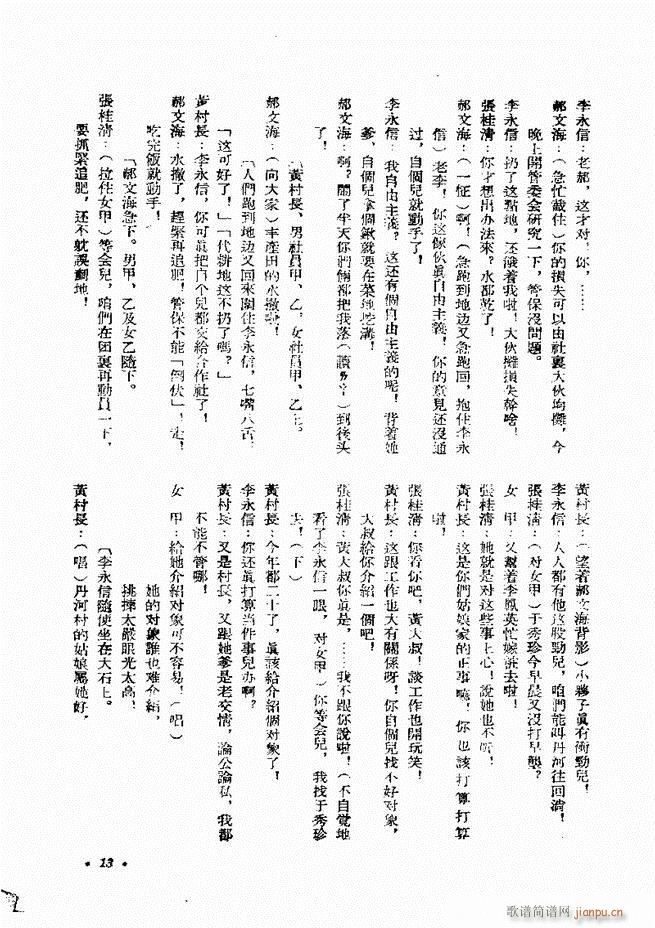 李永信：老郝，这才对，你，……
郝文海：（急忙截住）你的損失可以由社裏大伙均攤，今
晚上開管委会研究一下，管保沒問題。
李永信：扔了这點地，还餓着我啦！大伙攤損失幹啥！
張桂清：你才想出办法來？水都乾了！
郝文海：（一怔）啊！（急跑到地边又急跑回，抱住李永
信）老李！你这傢伙眞自由主義！你的意見还沒通
过，自個兒就動手了！
李永信：我自由主義？这还有個自由主義的呢！背着她
爹，自個兒拿個鍬就要在菜地挖溝！
郝文海：啊？閙了半天你們倆都把我落（讀ㄌㄚ）到後头
了！
〔黃村長、男社員甲、乙，女社員甲、乙上。
郝文海：（向大家）丰產田的水撤啦！
〔人們跑到地边又回來圍住李永信，七嘴八舌：
「这可好了！」「代耕地这不扔了嗎？」
黃村長：李永信，你可眞把自个兒都交給合作社了！
郝文海：水撤了，趕緊再追肥！管保不能「倒伏」！走！
吃完飯就動手！
〔郝文海急下。男甲、乙及女乙隨下。
張桂清：（拉住女甲）等会兒，咱們在团裏再動員一下，
要抓緊追肥，还不躭誤剷地！
黃村長：（望着郝文海背影）小夥子眞有衝勁兒！
李永信：人人都有他这股勁兒，咱們能叫丹河往回淌！
張桂清：（对女甲）于秀珍今早晨又沒打早壟？
女　甲：又幫着李鳳英忙嫁粧去啦！
張桂清：她就是对这些事上心！說她也不听！
黃村長：这是你們姑娘家的正事嘛！你也該打算打算
啦！
張桂清：你看你吧，黃大叔！談工作也開玩笑！
黃村長：这跟工作也大有關係呀！你自個兒找不好对象，
大叔給你介紹一個吧！
張桂清：黃大叔你眞是，……我不跟你說啦！（不自覚地
看了李永信一眼，对女甲）你等会兒，我找于秀珍
去！（下）
黃村長：今年都二十了，眞該給介紹個对象了！
李永信：你还眞打算当件事兒办啊？
黃村長：又是村長，又跟她爹是老交情，論公論私，我都
不能不管哪！
女　甲：給她介紹对象可不容易！（唱）
她的对象誰也难介紹，
挑揀太嚴眼光太高！
〔李永信隨便坐在大石上。
黃村長：（唱）丹河村的姑娘屬她好，
• 13 •
歌谱简谱网
jianpu.cn